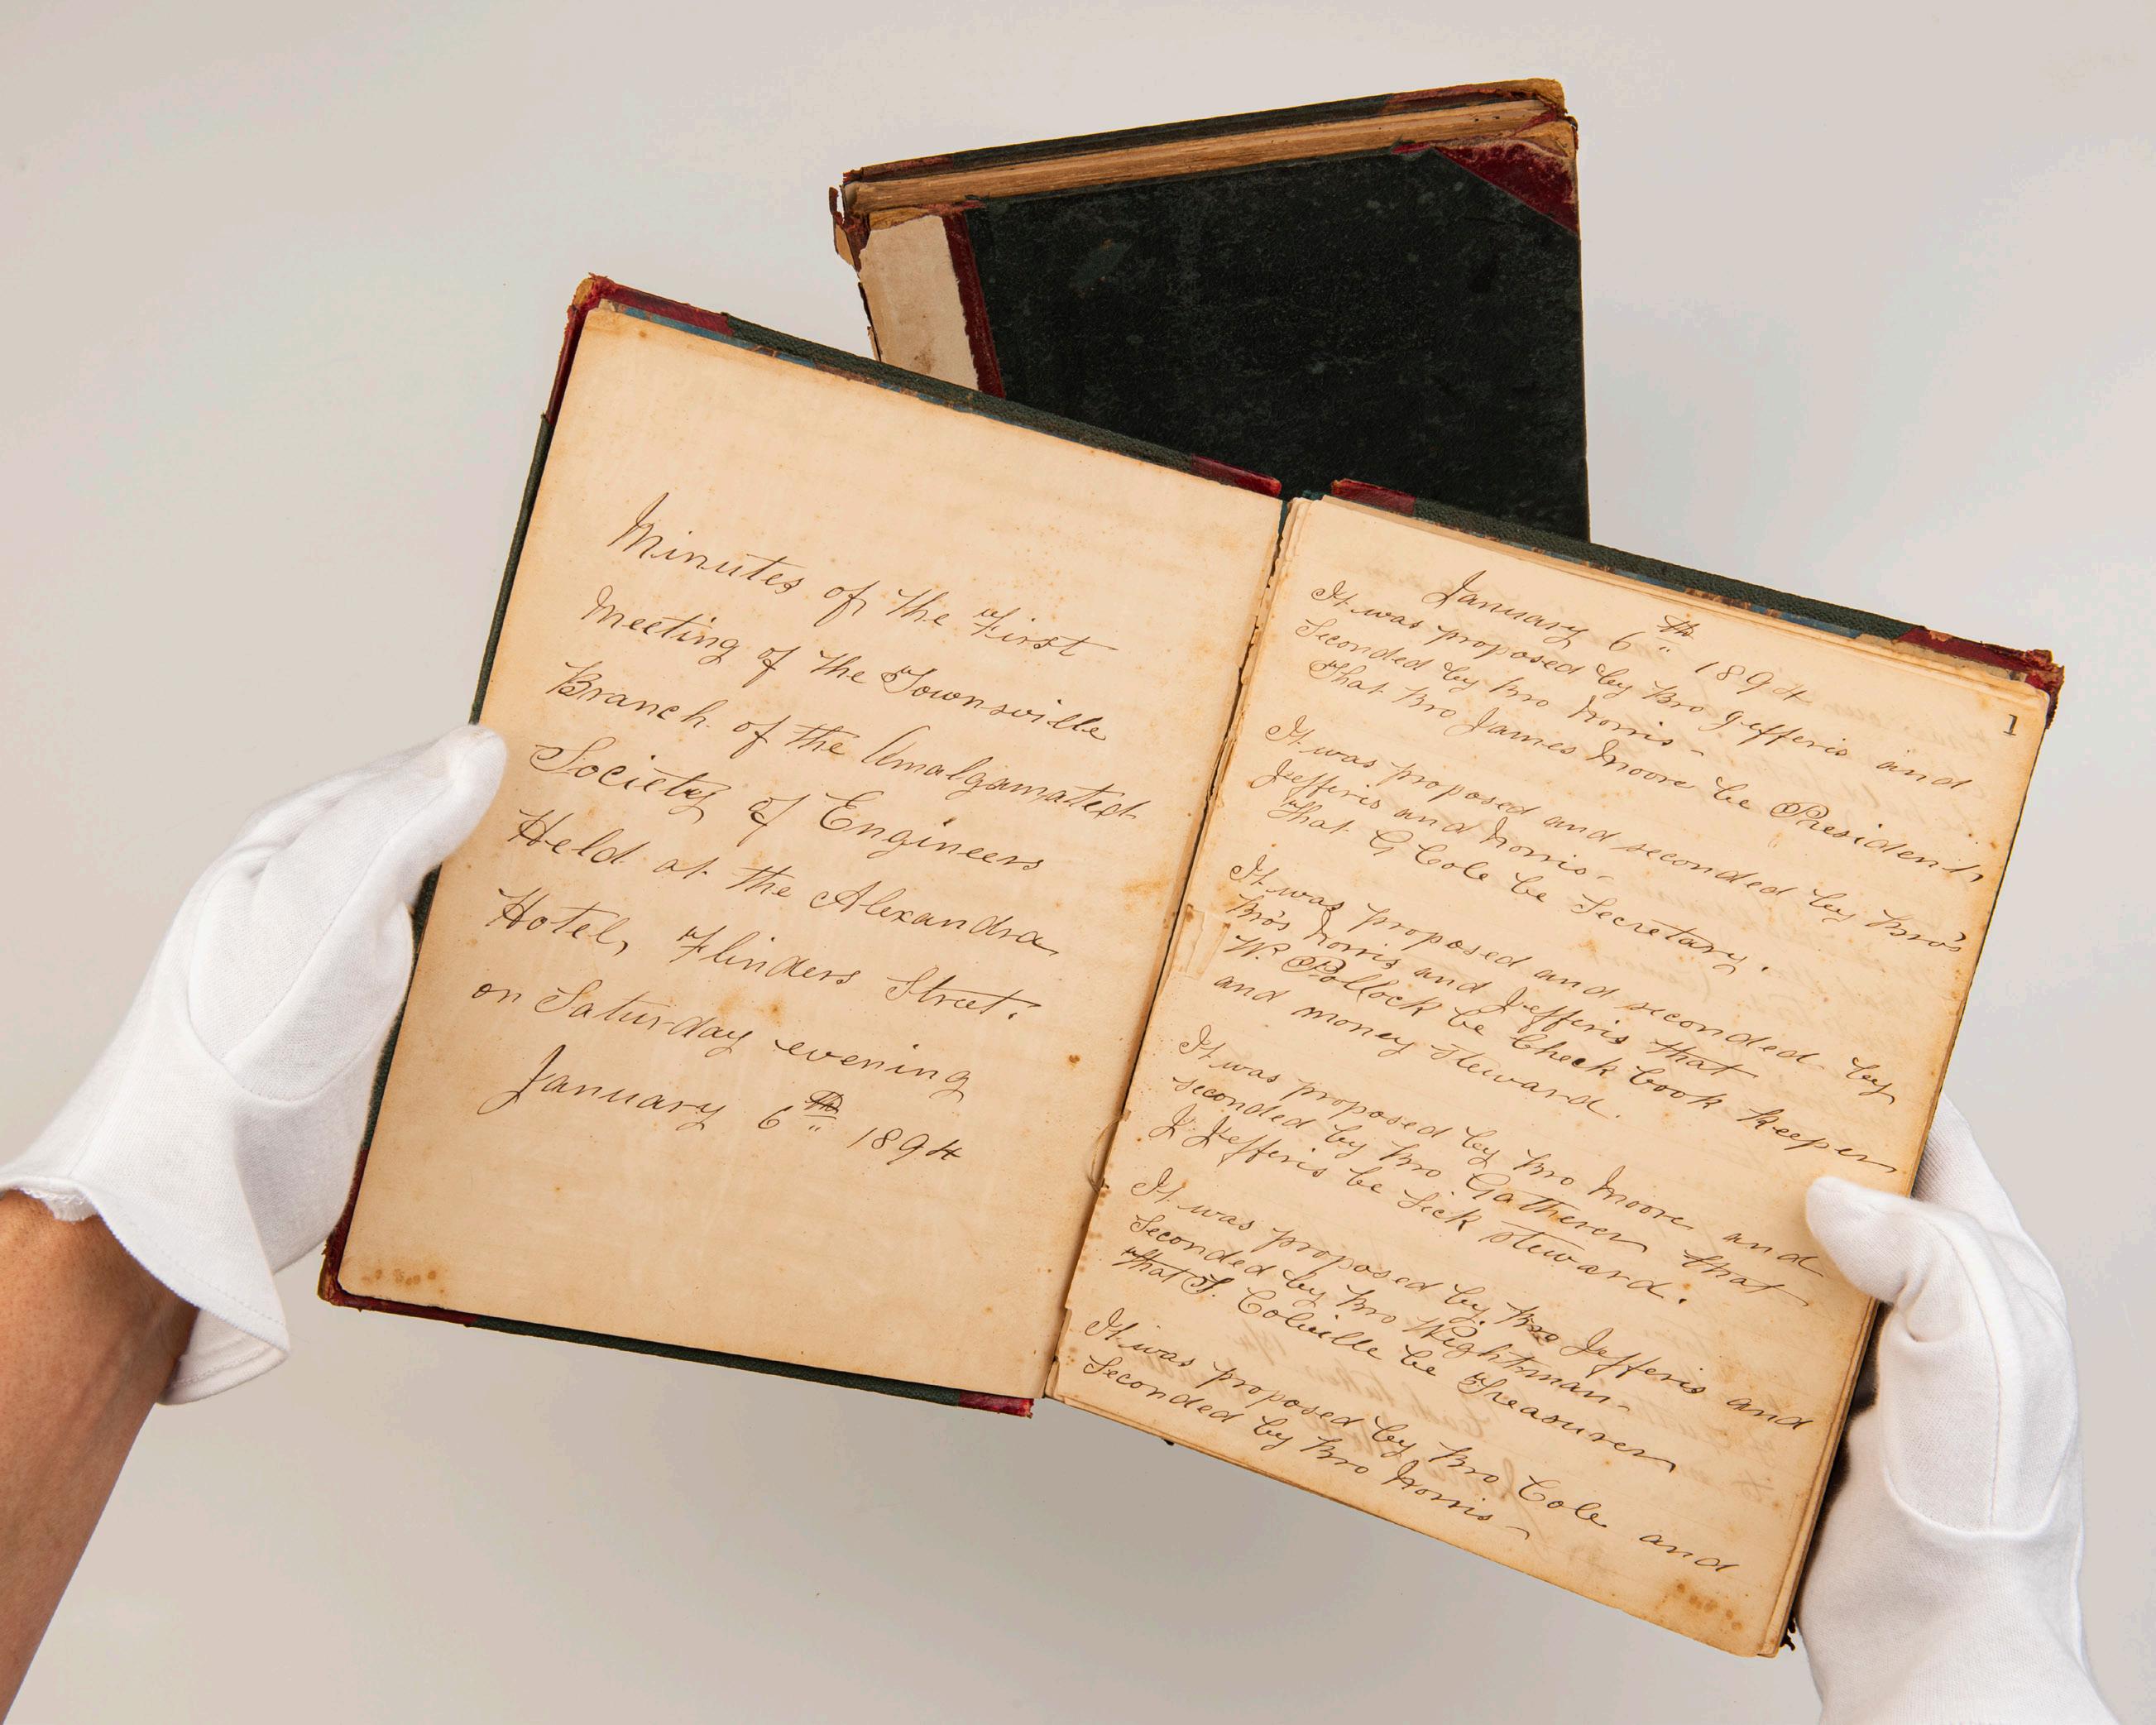 Minutes of the First
Meeting of the Townsville
Branch of the Amalgamated
Society of Engineers
Held at the Alexandra
Hotel, Flinders Street.
on Saturday evening
January 6th 1894
1
January 6th 1894
It was proposed by Bro Jefferis and
Seconded by Bro Norris -
That Bro James Moore be President
It was proposed and seconded by Bro's
Jefferis and Norris -
That G Cole be Secretary.
It was proposed and seconded by
Bro's Norris and Jefferis that
W. Pollock be Check book keeper
and money steward.
It was proposed by Bro Moore and
seconded by Bro Gatherer that
J. Jefferis be Sick Steward.
It was proposed by Bro Jefferis and
Seconded by Bro Wightman -
that T. Colville be Treasurer
It was proposed by Bro Cole and
Seconded by Bro Norris -